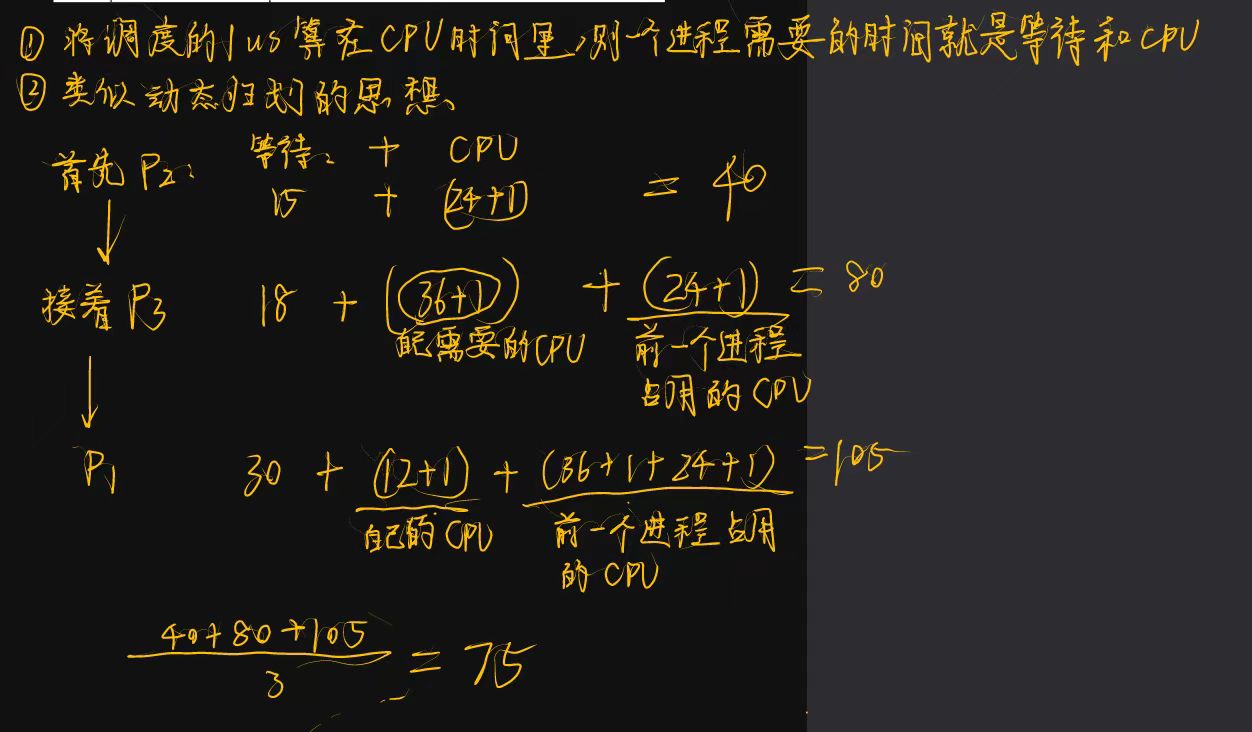 ① 将调度的1us算在CPU时间里,则一个进程需要的时间就是等待和CPU
② 类似动态归划的思想、
首先 P2: 等待: + CPU
15 + (24+1) = 40
接着 P3 18 + (36+1) + (24+1) = 80
自己需要的CPU 前一个进程
占用的CPU
P1 30 + (12+1) + (36+1+24+1) = 105
自己的CPU 前一个进程占用
的CPU
40+80+105
3
= 75